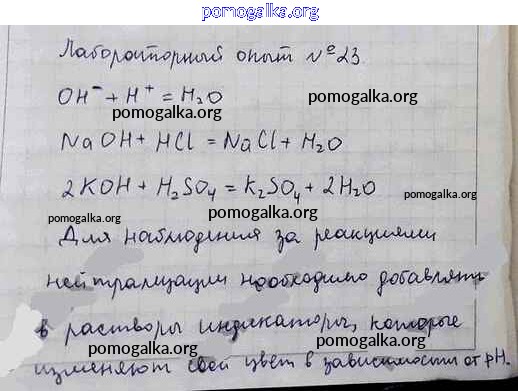 pomogalka.org
Лабораторный опыт №23.
OH⁻ + H⁺ = H₂O
pomogalka.org
pomogalka.org
NaOH + HCl = NaCl + H₂O
pomogalka.org
2KOH + H₂SO₄ = K₂SO₄ + 2H₂O
pomogalka.org
pomogalka.org
Для наблюдения за реакциями
pomogalka.org
нейтрализации необходимо добавлять
в растворы индикаторы, которые
pomogalka.org
pomogalka.org
изменяют свой цвет в зависимости от pH.